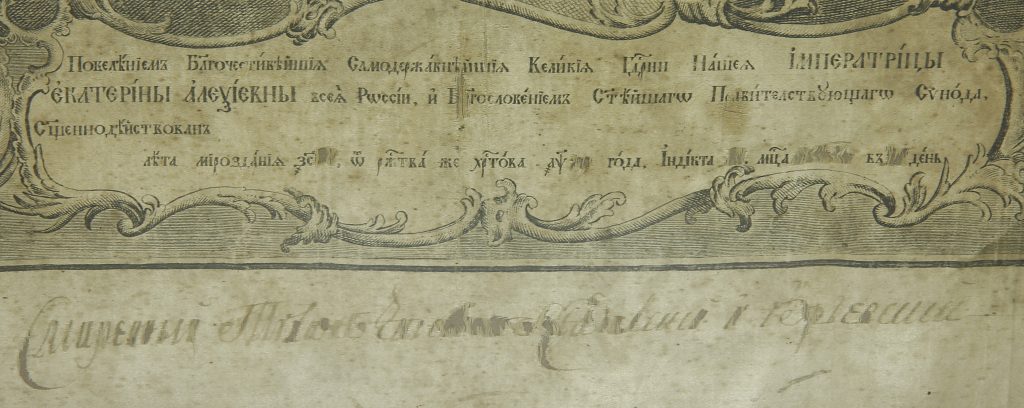 Повелѣнїемъ Бл҃гочестивѣйшїѧ Самодержавнѣйшїѧ Великїѧ Гдⷭ҇рни Нашеѧ ІМПЕРАТРІЦЫ
ЕКАТЕРІНЫ АЛЕѮІЕВНЫ всеѧ̀ Рѡссїи, и҆ Бл҃гословенїемъ Ст҃ѣйшагѡ Правителствующагѡ Сѵнода,
Сщ҃еннодѣйствованъ
лѣта мїрозданїѧ ѿ рж҇тва же хрт҇ова года, Індїкта мц҇а въ день
Смиренный Тихонъ и